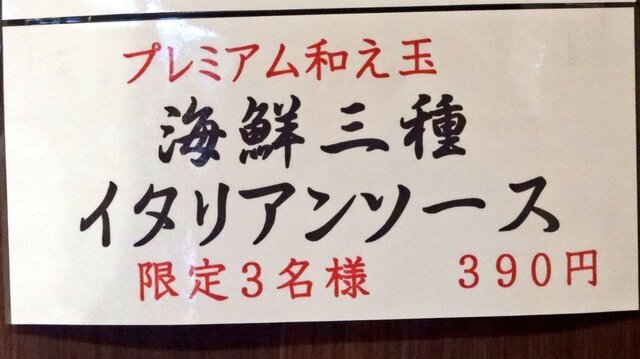 プレミアム和え玉
海鮮三種
イタリアンソース
限定3名様 390円